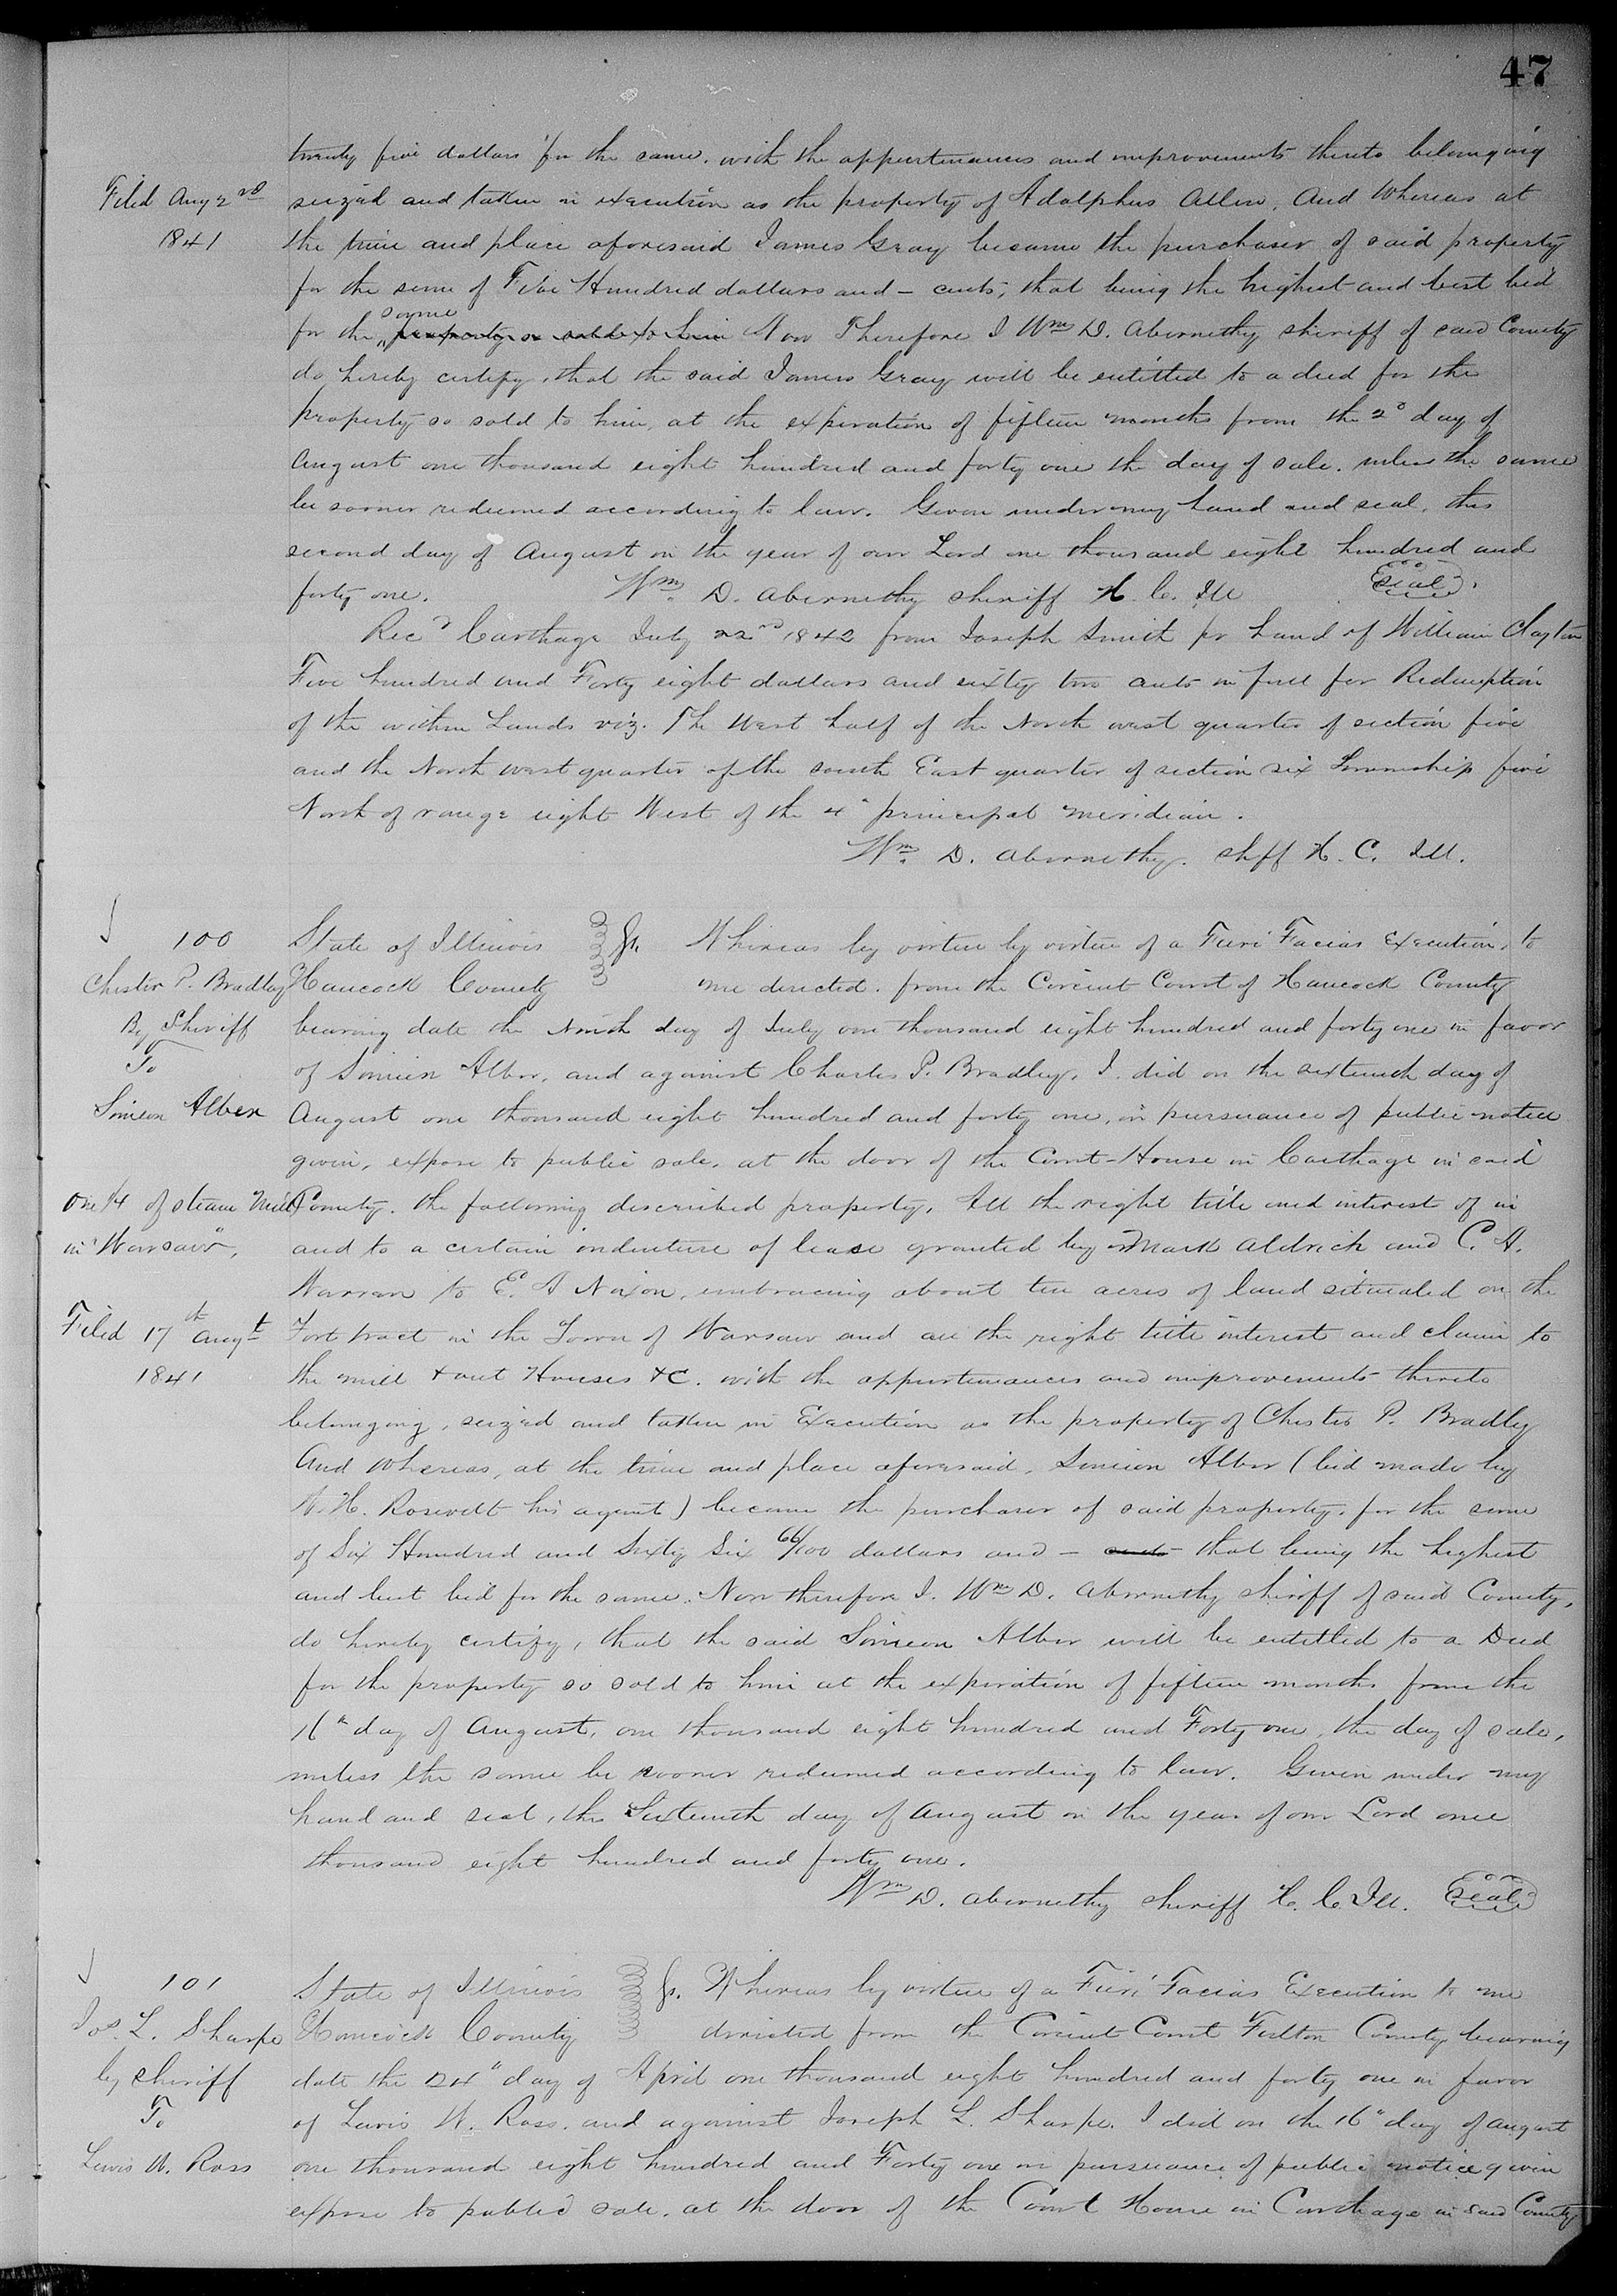 47
twenty five dollars for the same. with the appurtenances and improvements thereto belonging
Filed Aug 2nd
1841
seized and taken in execution as the property of Adolphus Allen. And Whereas at
the time and place aforesaid James Gray became the purchaser of said property
for the sum of Five Hundred dollars and – cents, that being the highest and best bid
for the same property so sold to him Now Therefore I Wm D. Abernethy sheriff of said County
do hereby certify, that the said James Gray will be entitled to a deed for the
property so sold to him, at the expiration of fifteen months from the 2d day of
August one thousand eight hundred and forty one the day of sale. unless the same
be sooner redeemed according to law. Given under my hand and seal, this
second day of August in the year of our Lord one thousand eight hundred and
forty one. Wm. D. Abernethy sheriff H. C. Ill Seal
Recd Carthage July 22nd 1842 from Joseph Smith pr hand of William Clayton
Five hundred and Forty eight dollars and sixty two cents in full for Redemption
of the within Lands viz. The West half of the North west quarter of section five
and the North west quarter of the south East quarter of section six Township five
North of range eight West of the 4" principal meridian.
Wm. D. Abernethy. Shff H. C. Ill.
100
Chester P. Bradley
By Sheriff
To
Simeon Alber
One 1/4 of steam Mill
in "Warsaw",
Filed 17th Augt
1841
State of Illinois Ss. Whereas by virtue by virtue of a Fieri Facias Execution, to
Hancock County me directed. from the Circuit Court of Hancock County
bearing date the Ninth day of July one thousand eight hundred and forty one in favor
of Simeon Alber, and against Charles P. Bradley, I. did on the sixteenth day of
August one thousand eight hundred and forty one, in pursuance of public notice
given, expose to public sale, at the door of the Court-House in Carthage in said
County. the following described property. All the right title and interest of in
and to a certain indenture of lease granted by Mark Aldrich and C. A.
Warren to E. A Nixon, embracing about ten acres of land situated on the
Fort tract in the Town of Warsaw and all the right title interest and claim to
the mill & out Houses &C. with the appurtenances and improvements thereto
belonging, seized and taken in Execution as the property of Chester P. Bradley
And Whereas, at the time and place aforesaid, Simeon Alber (bid made by
W. H. Rosevelt his agent) became the purchaser of said property, for the sume
of Six Hundred and Sixty Six 66/100 dollars and – cents – that being the highest
and best bid for the same. Now therefore I. Wm D. Abernethy sheriff of said County,
do hereby certify, that the said Simeon Alber will be entitled to a Deed
for the property so sold to him at the expiration of fifteen months from the
16th day of August, one thousand eight hundred and Forty one, the day of sale,
unless the same be sooner redeemed according to law. Given under my
hand and seal, this Sixteenth day of August in the year of our Lord one
thousand eight hundred and forty one.
Wm D. Abernethy sheriff H. C. Ill. Seal
101
Jos. L. Sharpe
by sheriff
To
Lewis W. Ross
State of Illinois Ss. Whereas by virtue of a Fieri Facias Execution to me
Hancock County directed from the Circuit Court Fulton County bearing
date the 24" day of April one thousand eight hundred and forty one in favor
of Lewis W. Ross. and against Joseph L. Sharpe. I did on the 16" day of August
one thousand eight hundred and Forty one in pursuance of public notice given
expose to public sale. at the door of the Court House in Carthage in said County